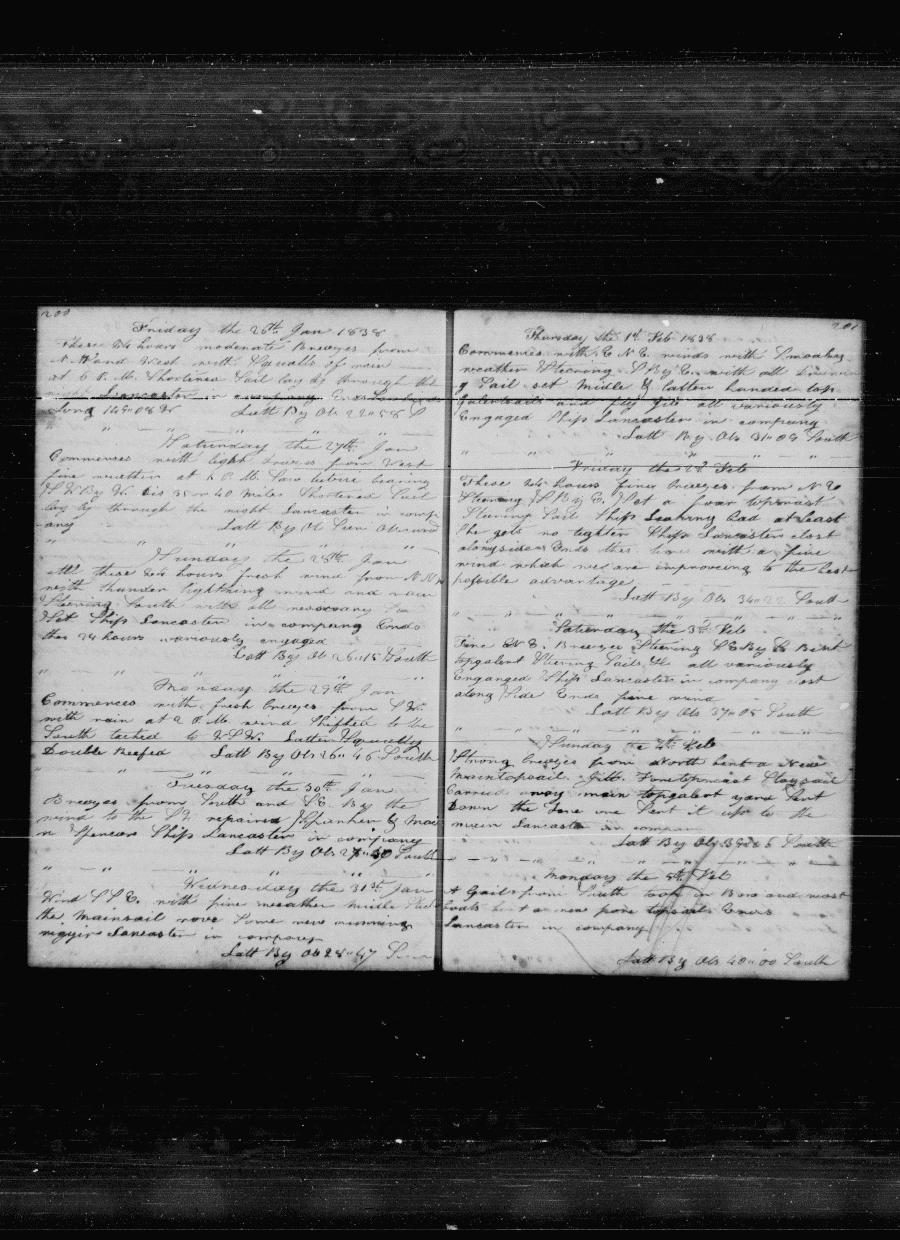 200
Friday the 26th Jan 1838
These 24 hours moderate Breezes from
N.W and West with Squalls of rain
at 6 P.M. Shortened Sail lay by through the
night Lancaster in company Ends
Long 149"08 W Latt By Obs 22"58 S
Saturday the 27th Jan
Commences with light breezes from West
fine weather at 6 P.M. Saw bearing
S.W By W. dis 35 or 40 miles Shortened Sail
lay by through the night Lancaster in comp
any Latt By Ob
Sunday the 28th Jan
All these 24 hours fresh wind from N.N.W
with thunder lightning wind and rain
Steering South with all necessary
Set Ship Lancaster in company Ends
thes 24 hours variously engaged
Latt By Ob 26"15 South
Monday the 29th Jan
Commences with fresh breezes from S.W.
with rain at 2 P.M. wind Shifted to the
South tacked to W.S.W. Latter Squally
Double Reefed Latt By Obs 26"46 South
Tuesday the 30th Jan
Breezes from South and S.E. By the
wind to the S.W. repaired Spanker & Mai
n Spencer Ship Lancaster in company
Latt By Obs 27"30 South
Wednesday the 31st Jan
Wind S S E. with fine weather middle
the Mainsail rove Some new running
riggin Lancaster in company
Latt By Ob 28"47
201
Thursday the 1st Feb 1838
Commences with E N E. winds with Smoakey
weather Steering S By E. with all
g Sail set Midle & Latter handed top
galentsails and fly gib all variously
Engaged Ship Lancaster in company
Latt By Obs 31"08 South
Friday the 2d Feb
These 24 hours fine breezes from N E
Steering S By E Set a fore topmast
Steering Sail Ship Leaking bad at least
She gets no tighter Ship Lancaster clost
alongside Ends thes hours with a fine
wind which we are improveing to the best
possible advantage
Latt By Obs 34"22 South
Saturday the 3d Feb
Fine N E. Breezes Steering S E By S Bent
topgalent Stering Sails &c all variously
Enganged Ship Lancaster in company clost
along Side Ends fine wind
Latt By Obs 37"05 South
Sunday the 4th Feb
Strong breezes from North bent a New
Maintopsail Gibb Foretopmast Staysail
Carried away main topgalent yard Sent
Down the fore one Sent it up to the
main Lancaster in company
Latt By Obs South
Monday the 5th Feb
A Gail from South took in Bow and waist
boats bent a new fore topsail Ends
Lancaster in company
Latt By Obs 40"00 South